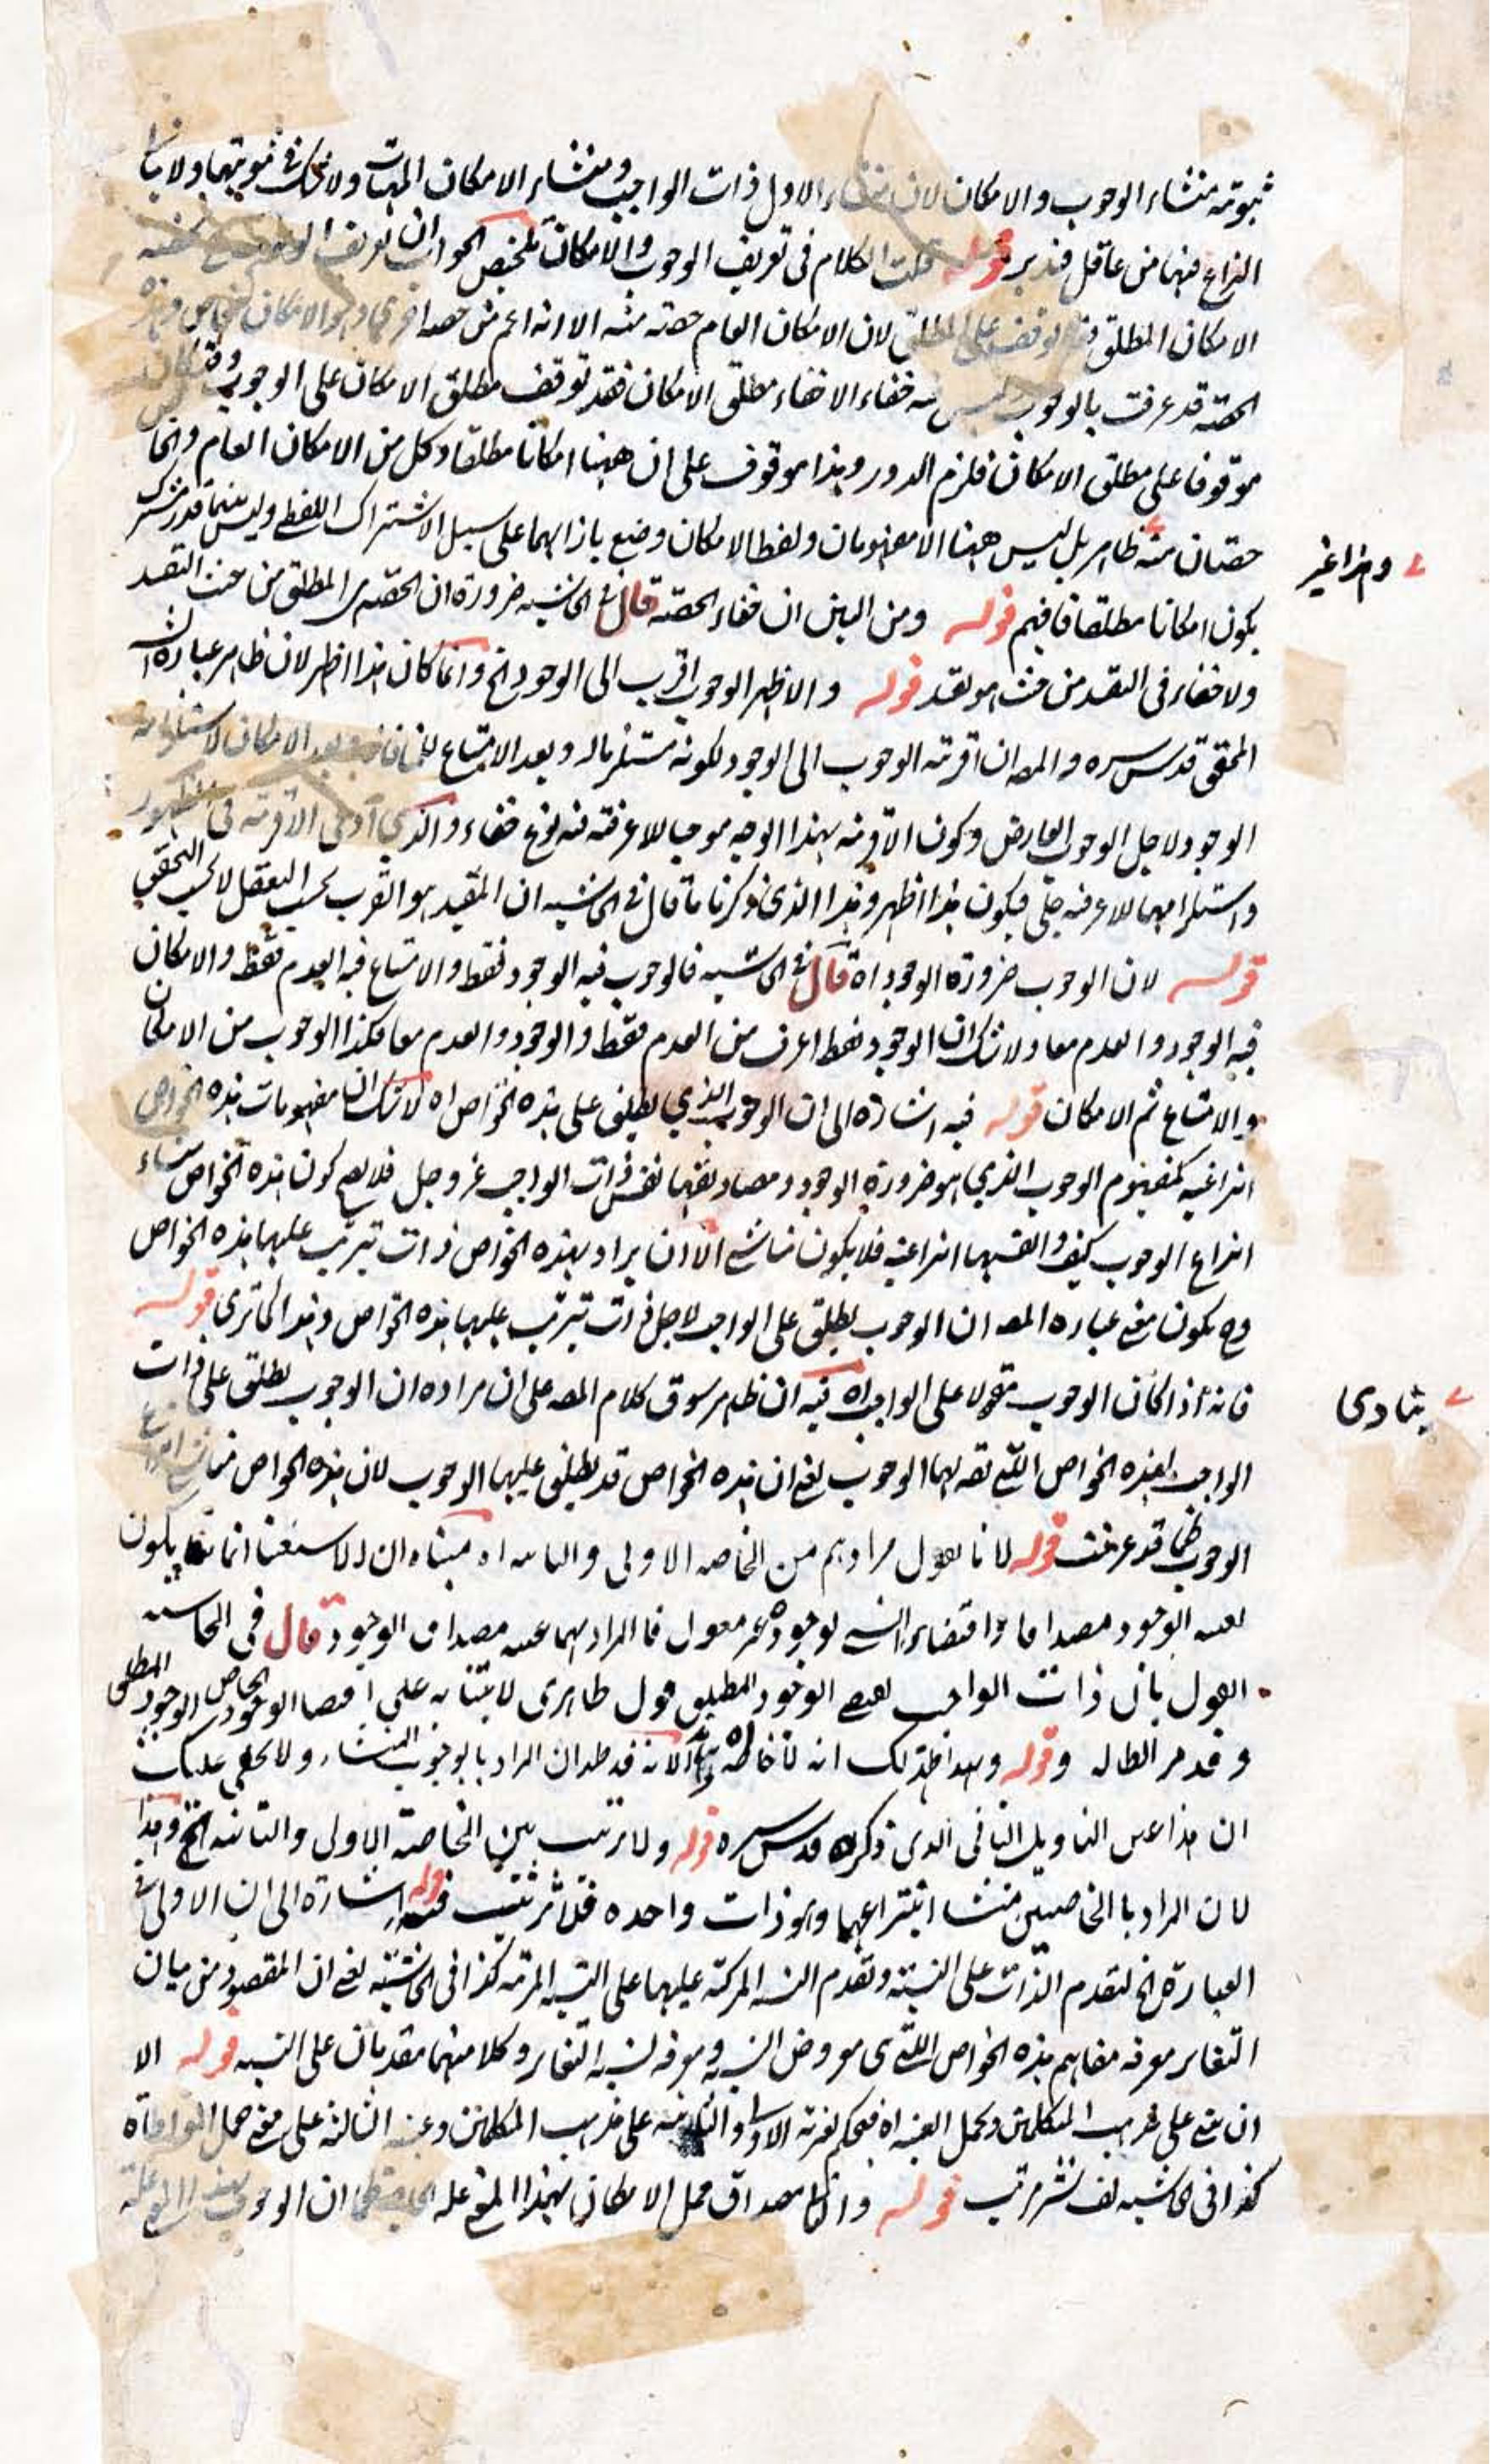 ثبوته منشاء الوجوب والامكان لان منشاء الاول ذات الواجب ومنشاء الامكان المهيات ولا شك في ثبوتهما ولا
النزاع فيهما من عاقل فتدبر قوله قلت الكلام في تعريف الوجوب والامكان تلخيص الجواب ان تعريف الوجوب
الامكان المطلق لان الامكان العام حصته منه الا انه اعم من حصة اخرى وهو الامكان الخاص وهذه
الحصة قد عرفت بالوجوب وليس فيه خفاء الا خفاء مطلق الامكان فقد توقف مطلق الامكان على الوجوب وقد كان
موقوفا على مطلق الامكان فلزم الدور وهذا موقوف على ان ههنا امكانا مطلقا وكل من الامكان العام والخاص
حصتان منه وهذا غير ظاهر بل ليس ههنا الا مفهومان ولفظ الامكان وضع بازائهما على سبيل الاشتراك اللفظي وليس بينهما قدر مشترك
يكون امكانا مطلقا فافهم قوله ومن البين ان خفاء الحصة قال في الحاشية ضرورة ان الحصة هي المطلق من حيث التقيد
ولا خفاء في التقيد من حيث هو تقيد قوله والاظهر الوجوب اقرب الى الوجود الخ وانما كان هذا اظهر لان ظاهر عبارة
المحقق قدس سره والمص ان اقربية الوجوب الى الوجود لكونه مستلزما له وبعد الامتناع وبعد الامكان
الوجود لاجل الوجوب العارض وكون الاقربية بهذا الوجه موجبا للاعرفية فيه نوع خفاء والذي ادعى الاقربية في
واستلزامها للاعرفية جلي فيكون هذا اظهر وهذا الذي ذكرنا ما قال في الحاشية ان المفيد هو القرب بحسب التعقل لا بحسب التحقق
قوله لان الوجوب ضرورة الوجود اه قال في الحاشية فالوجوب فيه الوجود فقط والامتناع فيه العدم فقط والامكان
فيه الوجود والعدم معا ولا شك ان الوجود فقط اعرف من العدم فقط والوجود والعدم معا فكذا الوجوب من الامكان
والامتناع ثم الامكان قوله فيه اشارة الى ان الوجوب الذي يطلق على هذه الخواص اه لا شك ان مفهومات هذه الخواص
انتزاعية كمفهوم الوجوب الذي هو ضرورة الوجود ومصادقها نفس ذات الواجب عز وجل فلا يصح كون هذه الخواص منشاء
انتزاع الوجوب كيف وانفسها انتزاعية فلا يكون مناشي الا ان يراد بهذه الخواص ذات تترتب عليها هذه الخواص
وح يكون معنى عبارة المص ان الوجوب يطلق على الواجب لاجل ذات تترتب عليها هذه الخواص وهذا كما ترى قوله
فانه اذا كان الوجوب مقولا على الواجب اه فيه ان ظاهر سوق كلام المص ينادى على ان مراده ان الوجوب يطلق على ذات
الواجب لهذه الخواص التي تقه لها الوجوب يعني ان هذه الخواص قد يطلق عليها الوجوب لان هذه الخواص مناشي انتزاع
الوجوب كما قد عرفت قوله لانا نقول مرادهم من الخاصة الاولى والثانية اه مبناه ان الاستغنا انما يكون
لعينية الوجود مصداقا واقتضاء الشيء لوجوده غير معقول فالمراد بهما عينية مصداق الوجود قال في الحاشية
القول بان ذات الواجب يقتضي الوجود المطلق قول ظاهرى لابتنائه على اقتضا الوجود الخاص الوجود المطلق
وقد مر ابطاله وقوله وبهذا ظهر لك ان الخاصة لانه قد ظهر ان المراد بالوجوب المنشاء ولا يخفى عليك
ان هذا عين التاويل الثانى الذى ذكره قدس سره قوله ولا ترتيب بين الخاصة الاولى والثانية الخ وهذا
لان المراد بالخاصتين منشا انتزاعهما وهو ذات واحده فلا ترتيب قوله فيه اشارة الى ان الاولى في
العبارة الخ لتقدم الذات على النسبة وتقدم النسبة المركبة عليها على النسبة المرتبة كذا في الحاشية يعني ان المقصود من بيان
التغاير معرفة مفاهيم هذه الخواص اللتي هي معروض النسبة ومعرفة نسبة التغاير وكلا منهما مقدمان على النسبة قوله الا
ان يبنى على مذهب المتكلمين ويحمل العينية اه فيحكم بغيرية الاولى والثانية على مذهب المتكلمين وعينية الثالثة على معنى حمل المواطاة
كذا في الحاشية لف نشر مرتب قوله وايضا مصداق حمل الامكان بهذا المعنى علة ان الوجوب بهذا المعنى علة
وهذا غير
ينادى